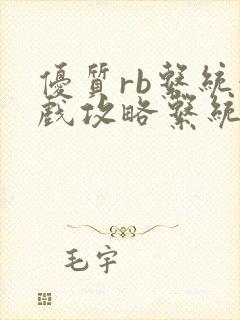 優質rb系統
戲攻略系統
毛宇